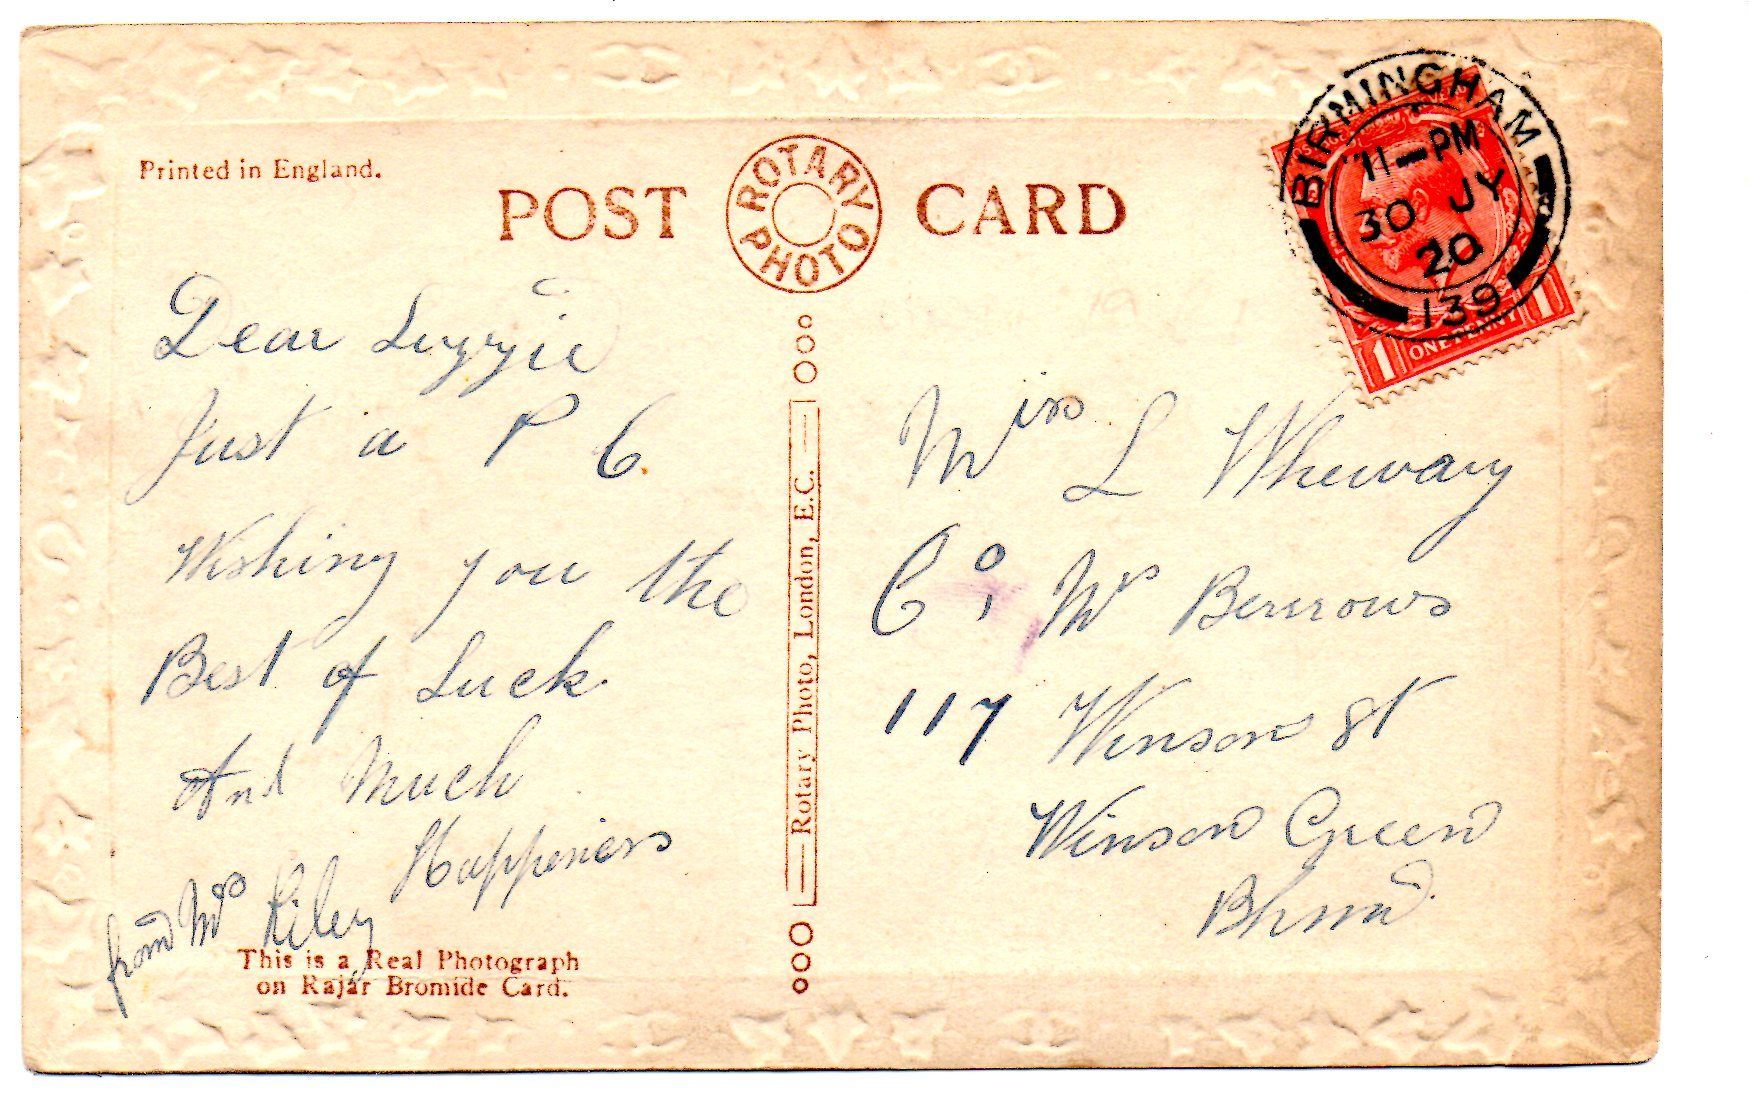 Printed in England.
POST CARD
ROTARY PHOTO
BIRMINGHAM
11-PM
30 JY
20
139
1 ONE PENNY 1
Dear Lizzie
Just a P C.
Wishing you the
Best of Luck
And Much
Happiness
from Mrs Riley
This is a Real Photograph
on Rajar Bromide Card.
Rotary Photo, London, E.C.
Miss L Wheway
C/o Mrs Berrows
117 Winson St
Winson Green
Bhm